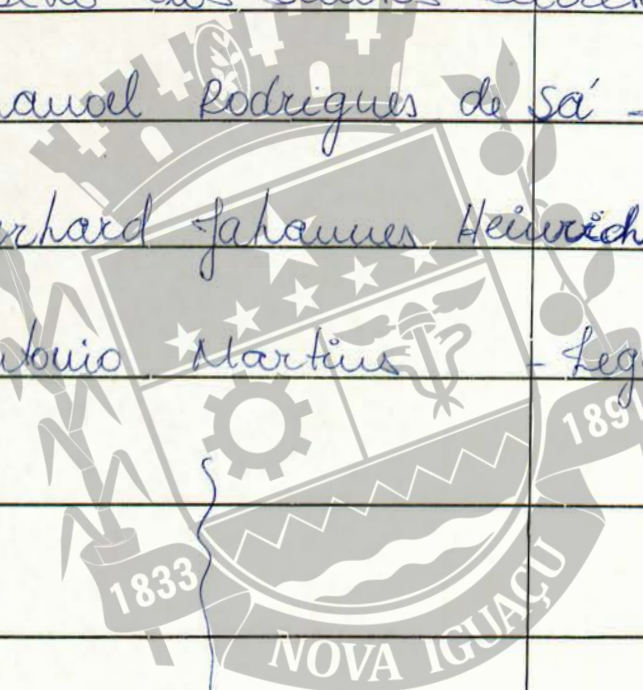 dos Santos
anoel Rodrigues de Sá -
rhard Johannes Heinrich
ntonio Martins - Leg
1891
1833
NOVA IGUAÇU